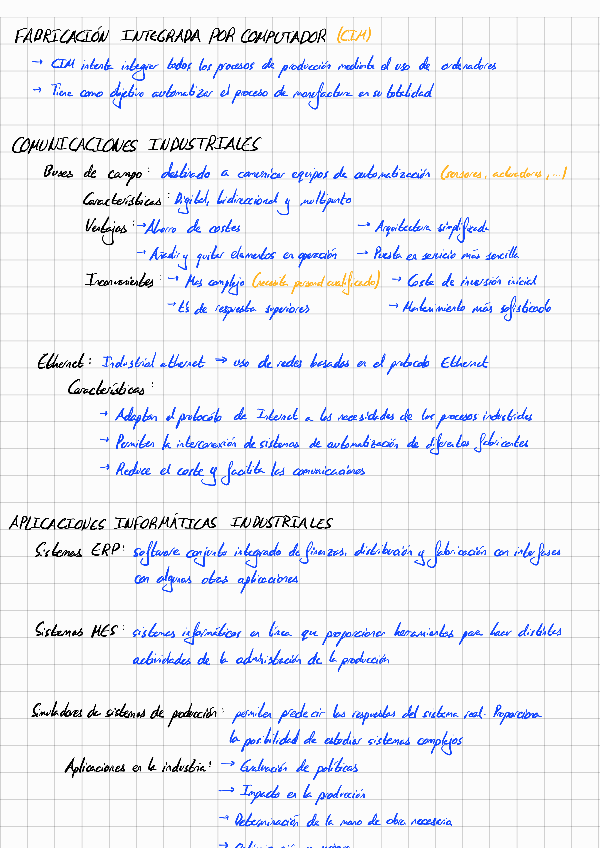 FABRICACIÓN INTEGRADA POR COMPUTADOR (CIM)
→ CIM intenta integrar todos los procesos de producción mediante el uso de ordenadores
→ Tiene como objetivo automatizar el proceso de manufactura en su totalidad
COMUNICACIONES INDUSTRIALES
Buses de campo: destinado a comunicar equipos de automatización (sensores, actuadores, ...)
Características: Digital, bidireccional y multipunto
Ventajas: → Ahorro de costes → Arquitectura simplificada
→ Añadir y quitar elementos en operación → Puesta en servicio más sencilla
Inconvenientes: → Mas complejo (necesita personal cualificado) → Coste de inversión inicial
→ t's de respuesta superiores → Mantenimiento más sofisticado
Ethernet: Industrial ethernet ⇒ uso de redes basadas en el protocolo Ethernet
Características:
→ Adaptan el protocolo de Internet a las necesidades de los procesos industriales
→ Permiten la interconexión de sistemas de automatización de diferentes fabricantes
→ Reduce el coste y facilita las comunicaciones
APLICACIONES INFORMÁTICAS INDUSTRIALES
Sistemas ERP: software conjunto integrado de finanzas, distribución y fabricación con interfases
con algunas otras aplicaciones
Sistemas MES: sistemas informáticos en línea que proporcionan herramientas para hacer distintas
actividades de la administración de la producción
Simuladores de sistemas de producción: permiten predecir las respuestas del sistema real. Proporciona
la posibilidad de estudiar sistemas complejos
Aplicaciones en la industria: → Evaluación de políticas
→ Impacto en la producción
→ Determinación de la mano de obra necesaria